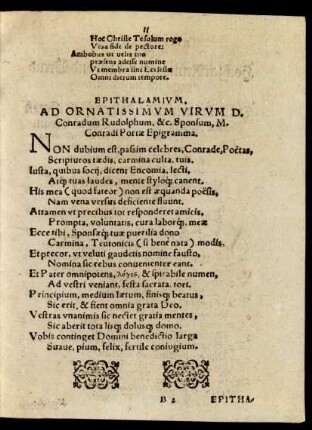 11
Hoc Christe Te solum rogo
Vera fide de pectore:
Ambobus ut velis tuo
præsens adesse numine
Vt membra sint Ecclesiæ
Omni dierum tempore.
EPITHALAMIVM,
AD ORNATISSIMVM VIRVM D.
Conradum Rudolphum, &c. Sponsum, M.
Conradi Portæ Epigramma.
NON dubium est, passim celebres, Conrade, Poëtas,
Scripturos tædis, carmina culta, tuis.
Iusta, quibus socij, dicent Encomia, lecti,
Atq́; tuas laudes, mente styloq́; canent.
His mea (quod fateor) non est æquanda poësis,
Nam vena versus deficiente fluunt.
Attamen vt precibus tot responderet amicis,
Prompta, voluntatis, cura laborq́; meæ
Ecce tibi, Sponsæq́; tuæ puerilia dono
Carmina, Teutonicis (si bene nata) modis.
Et precor, vt veluti gaudetis nomine fausto,
Nomina sic rebus convenienter eant.
Et Pater omnipotens, λόγος, & spirabile numen,
Ad vestri veniant, festa sacrata, tori.
Principium, medium lætum, finisq́; beatus,
Sic erit, & fient omnia grata Deo.
Vestras vnanimis sic nectet gratia mentes,
Sic aberit tota lisq́; dolusq́; domo.
Vobis continget Domini benedictio larga
Suave, pium, felix, fertile coniugium.
B 2 EPITHA